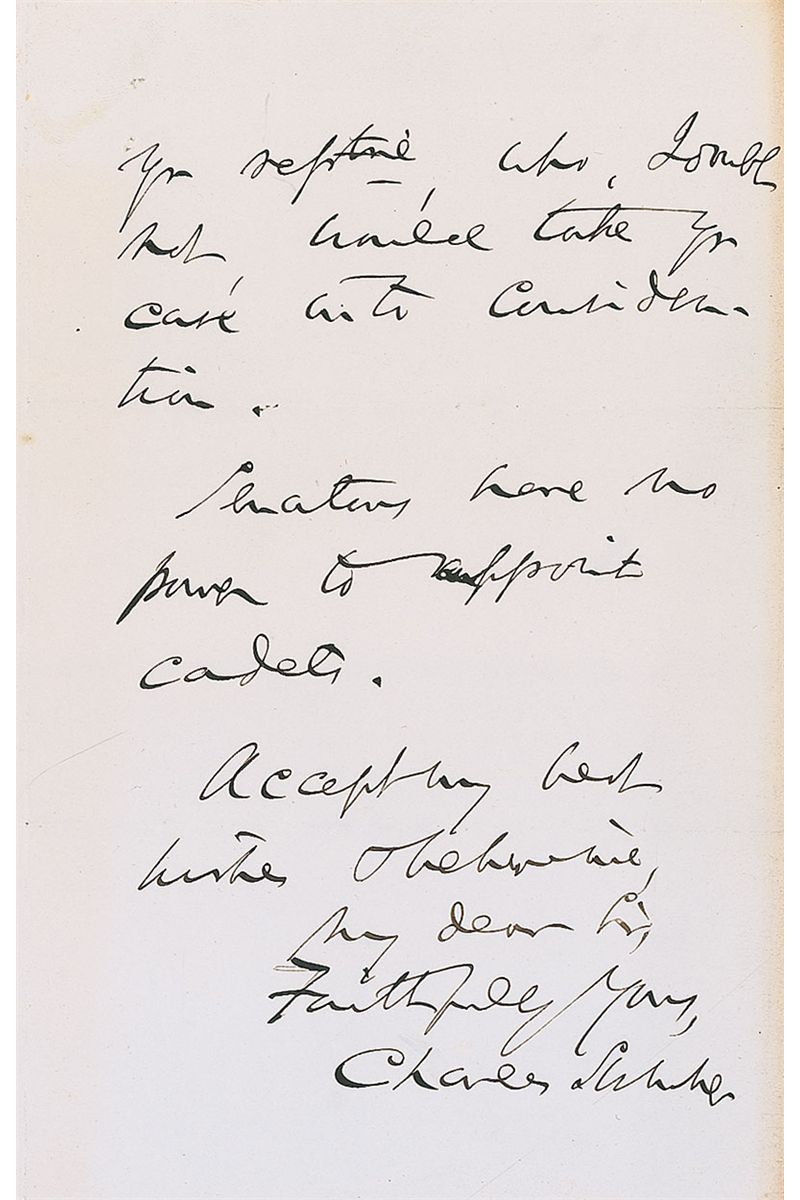 yr reptve, who, I doubt
not, would take yr
case into considera-
tion.
Senators have no
power to appoint
cadets.
Accept my best
wishes & believe me,
my dear Sir,
Faithfully Yours,
Charles Sumner